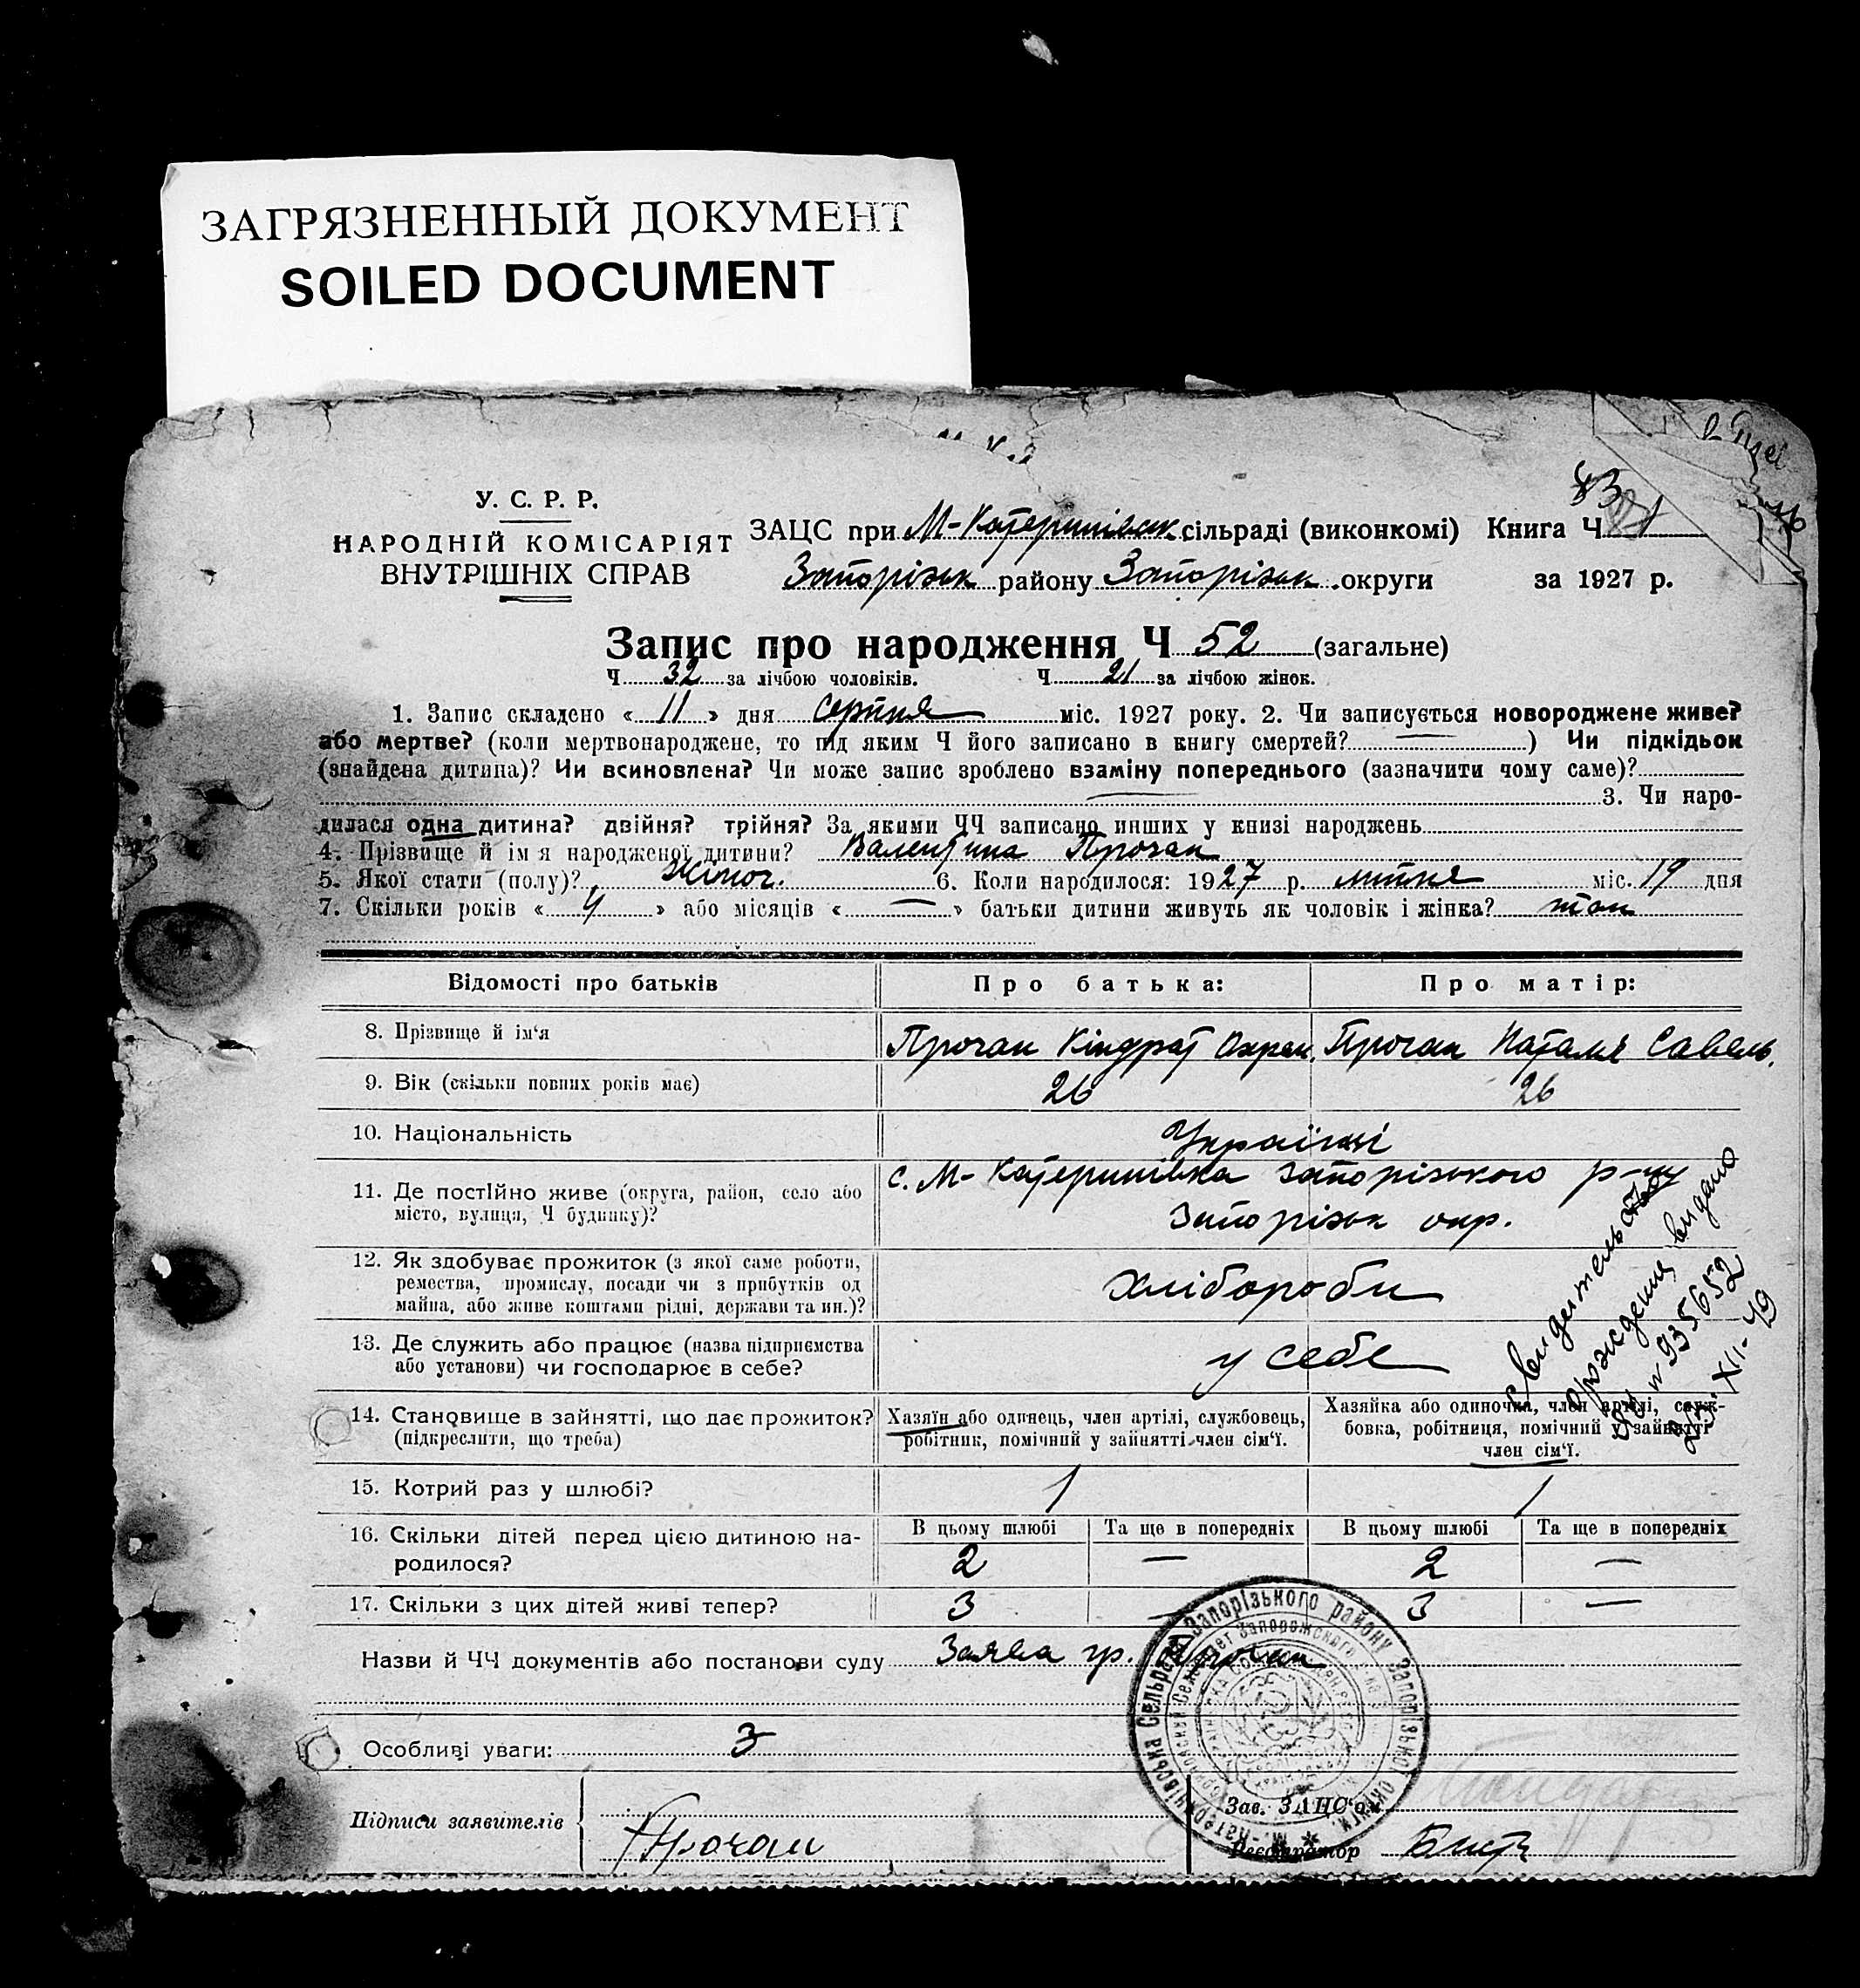 ЗАГРЯЗНЕННЫЙ ДОКУМЕНТ
SOILED DOCUMENT
У. С. Р. Р.
НАРОДНІЙ КОМІСАРІЯТ
ВНУТРІШНІХ СПРАВ
83
ЗАЦС при М-Катеринівськ сільраді (виконкомі) Книга Ч 1
Запорізьк району Запорізьк округи за 1927 р.
Запис про народження Ч 52 (загальне)
Ч 32 за лічбою чоловіків. Ч 21 за лічбою жінок.
1. Запис складено « 11 » дня серпня міс. 1927 року. 2. Чи записується новороджене живе?
або мертве? (коли мертвонароджене, то під яким Ч його записано в книгу смертей? — ) Чи підкідьок
(знайдена дитина)? Чи всиновлена? Чи може запис зроблено взаміну попереднього (зазначити чому саме)?
— 3. Чи наро-
дилася одна дитина? двійня? трійня? За якими ЧЧ записано инших у книзі народжень
4. Прізвище й ім'я народженої дитини? Валентина Прочан
5. Якої стати (полу)? Жіноч. 6. Коли народилося: 1927 р. липня міс. 19 дня
7. Скільки років « 4 » або місяців « — » батьки дитини живуть як чоловік і жінка? так
Відомості про батьків Про батька: Про матір:
8. Прізвище й ім'я Прочан Кіндрат Охрем. Прочан Наталя Савель.
9. Вік (скільки повних років має) 26 26
10. Національність Українці
11. Де постійно живе (округа, район, село або місто, вулиця, Ч будинку)?
с. М-Катеринівка Запорізького р-ну
Запорізьк окр.
12. Як здобуває прожиток (з якої саме роботи,
ремества, промислу, посади чи з прибутків од
майна, або живе коштами рідні, держави та ин.)?
хлібороби
13. Де служить або працює (назва підприємства
або установи) чи господарює в себе?
у себе
свидетельство
о рождении выдано
№ 935652
23-XII-49
14. Становище в зайнятті, що дає прожиток?
(підкреслити, що треба)
Хазяїн або одинець, член артілі, службовець,
робітник, помічний у зайнятті член сім'ї.
Хазяйка або одиночка, член артілі, служ-
бовка, робітниця, помічний у зайнятті
член сім'ї.
15. Котрий раз у шлюбі? 1 1
16. Скільки дітей перед цією дитиною на-
родилося?
В цьому шлюбі Та ще в попередніх В цьому шлюбі Та ще в попередніх
2 — 2 —
17. Скільки з цих дітей живі тепер? 3 — 3 —
Назви й ЧЧ документів або постанови суду Заява гр. Прочан
Особливі уваги: 3
Підписи заявителів Прочан
Зав. ЗАЦС'ом
Реєстратор